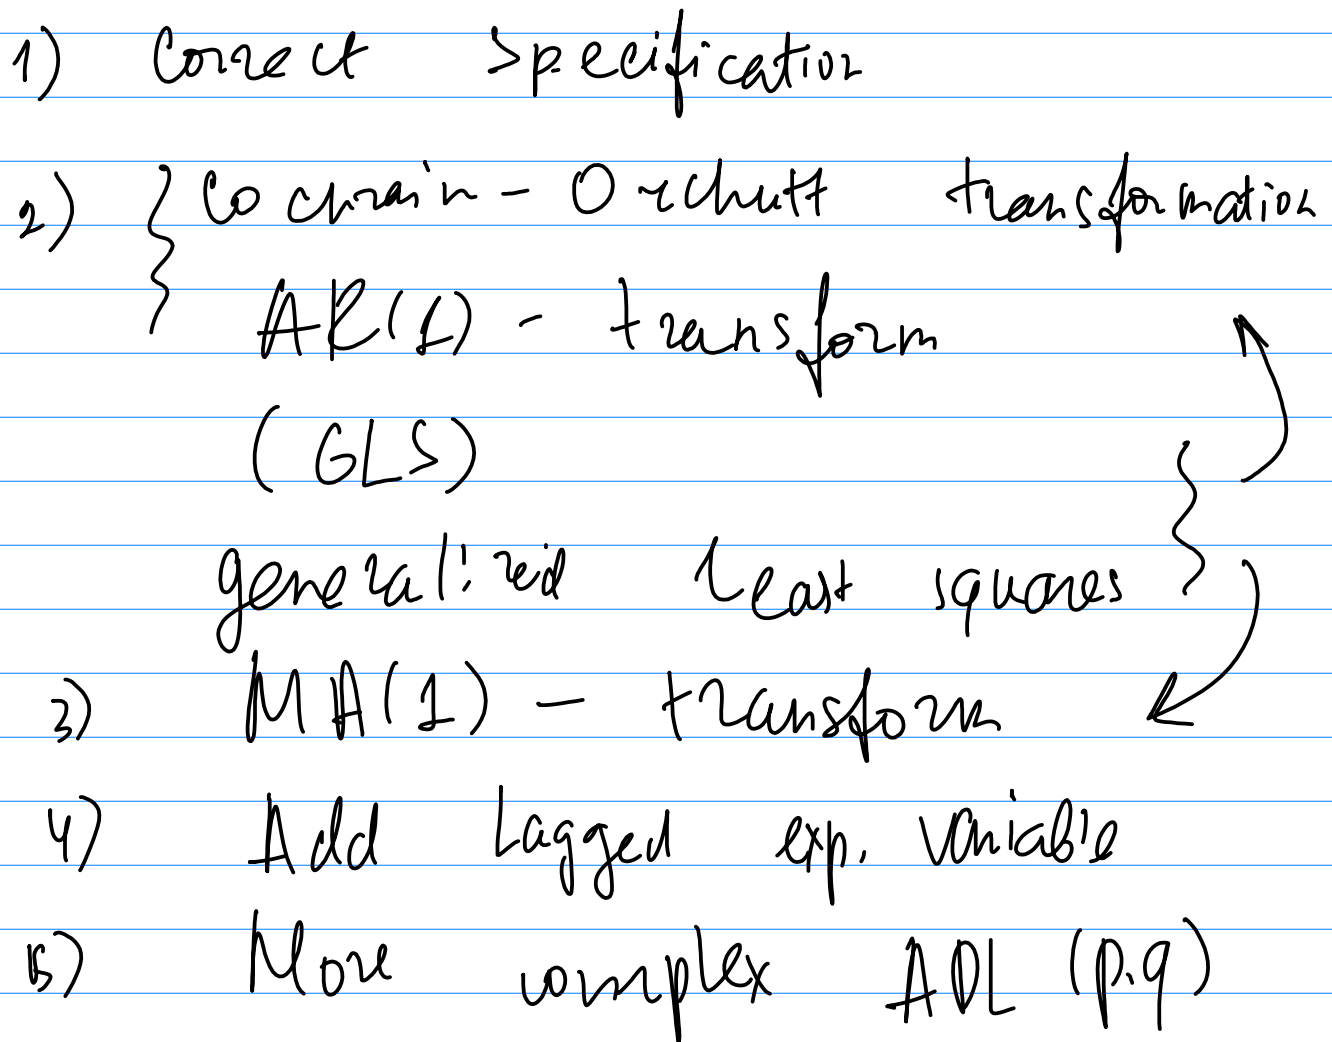 1) Correct specification
2) Cochrain - Orchutt transformation
AR(1) - transform
(GLS)
generalized least squares
3) MA(1) - transform
4) Add Lagged exp. variable
5) More complex ADL (p.q)